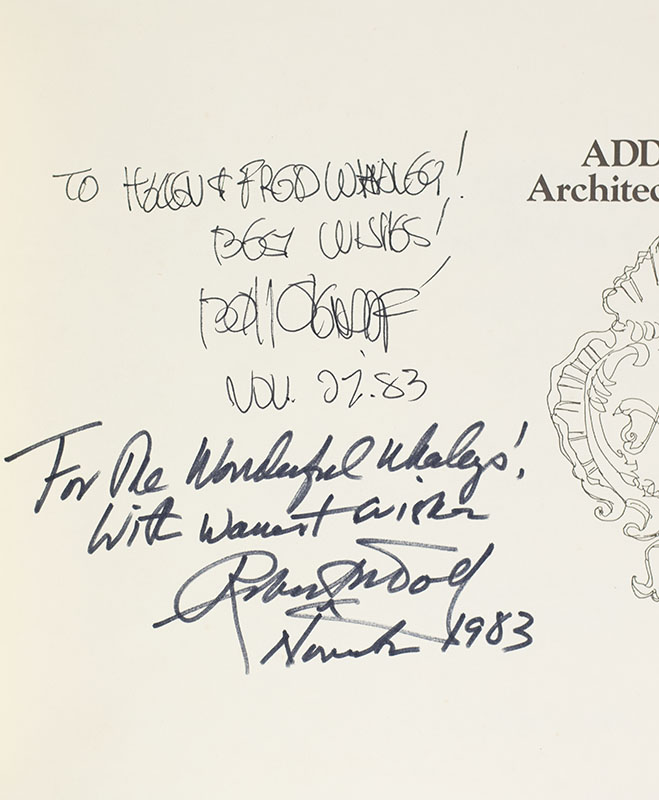 ADD
Architec
TO HELEN & FRED WHALEY!
BEST WISHES!
Bill Olendorf
NOV. 27.83
For The Wonderful Whaleys!
With Warmest Wishes
Robert Tolf
November 1983